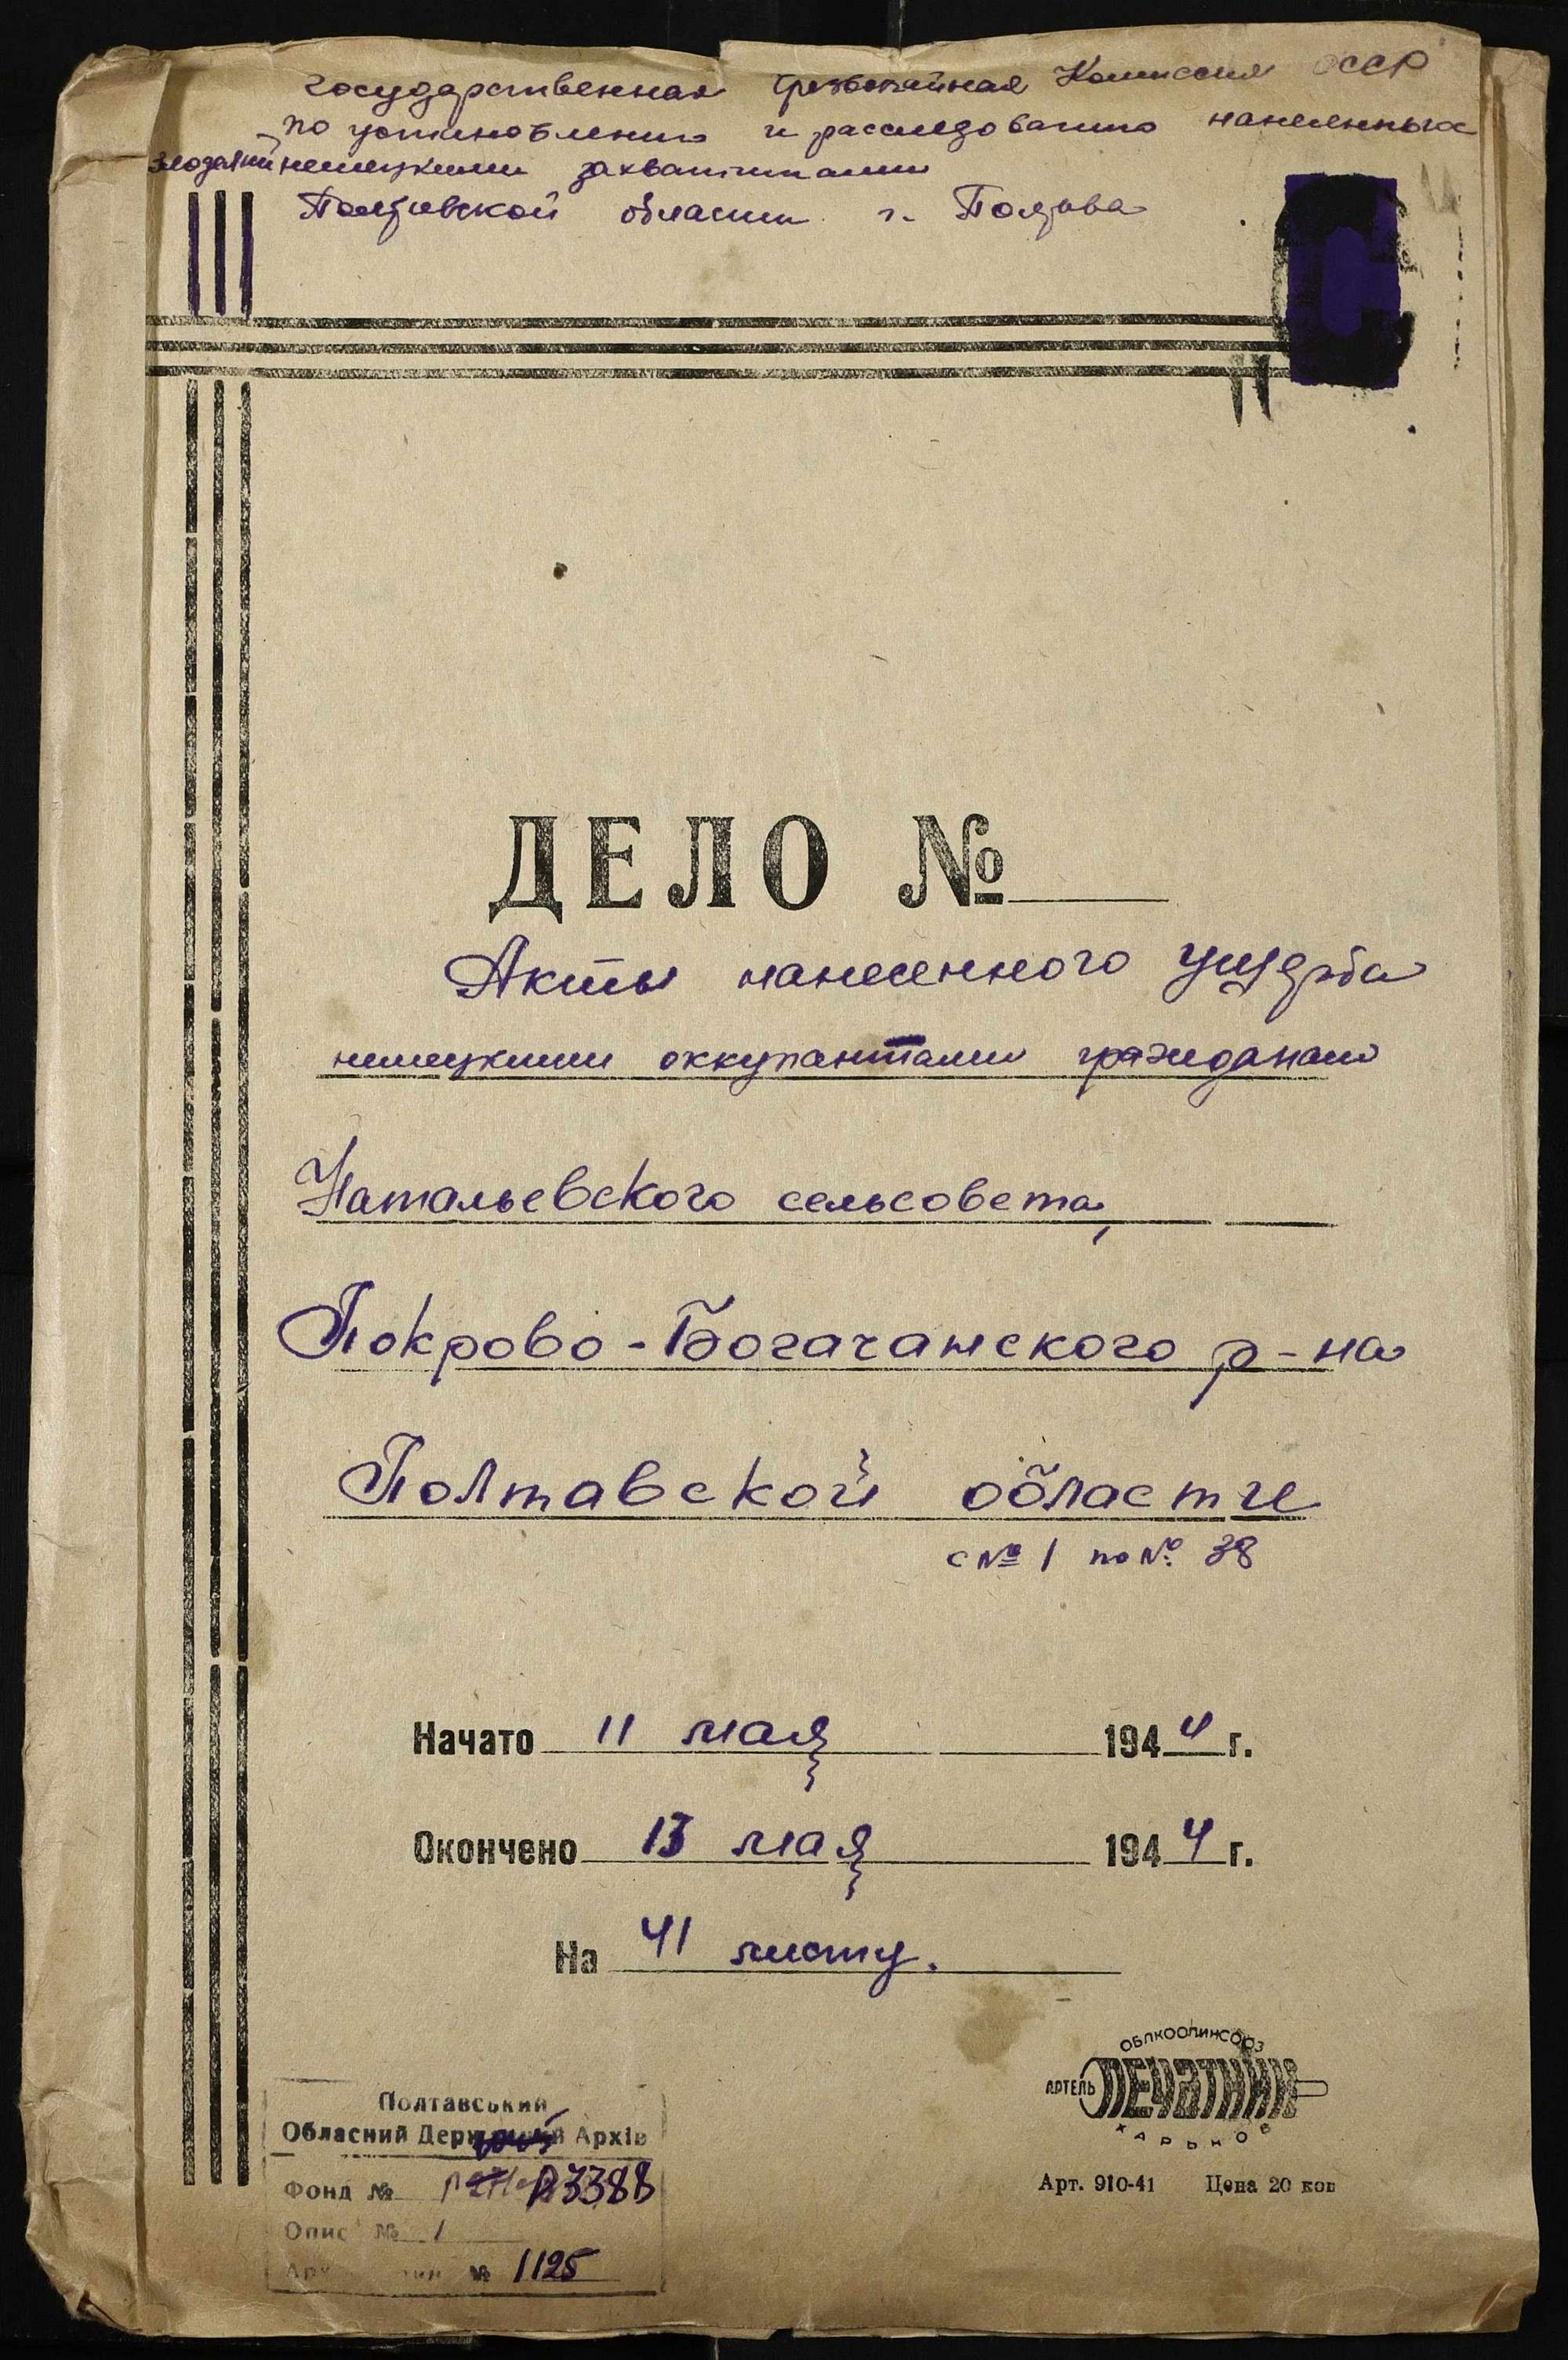 Государственная Чрезвычайная Комиссия СССР
по установлению и расследованию нанесенных
злодеяний немецкими захватчиками
Полтавской области г. Полтава
ДЕЛО №
Акты нанесенного ущерба
немецкими оккупантами гражданам
Натальевского сельсовета,
Покрово-Богачанского р-на
Полтавской области
с № 1 по № 38
Начато 11 мая 1944 г.
Окончено 13 мая 1944 г.
На 41 листу.
ОБЛКООПИНСОЮЗ
АРТЕЛЬ ПЕЧАТНИК
ХАРЬКОВ
Арт. 910-41 Цена 20 коп
Полтавський
Обласний Архів
Фонд № Р3388
Опис № 1
№ 1125